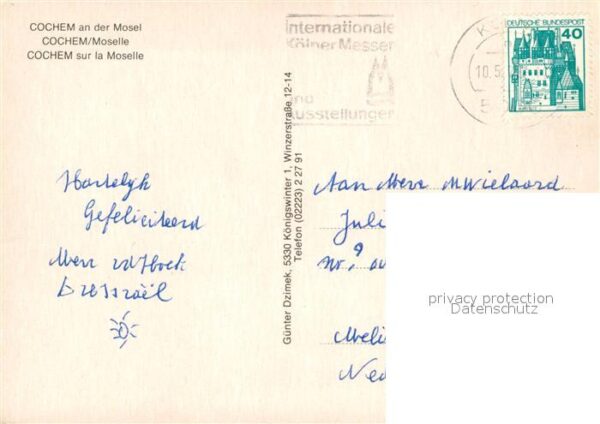 COCHEM an der Mosel
COCHEM/Moselle
COCHEM sur la Moselle
Internationale
Kölner Messen
und
Ausstellungen
10.5.
DEUTSCHE BUNDESPOST
40
Günter Dzimek, 5330 Königswinter 1, Winzerstraße 12-14
Telefon (02223) 2 27 91
Hartelijk
Gefeliciteerd
Mevr vd Hoek
Aan Mevr M Wielaard
Juli
nr. 9
Meli
Ned
privacy protection
Datenschutz